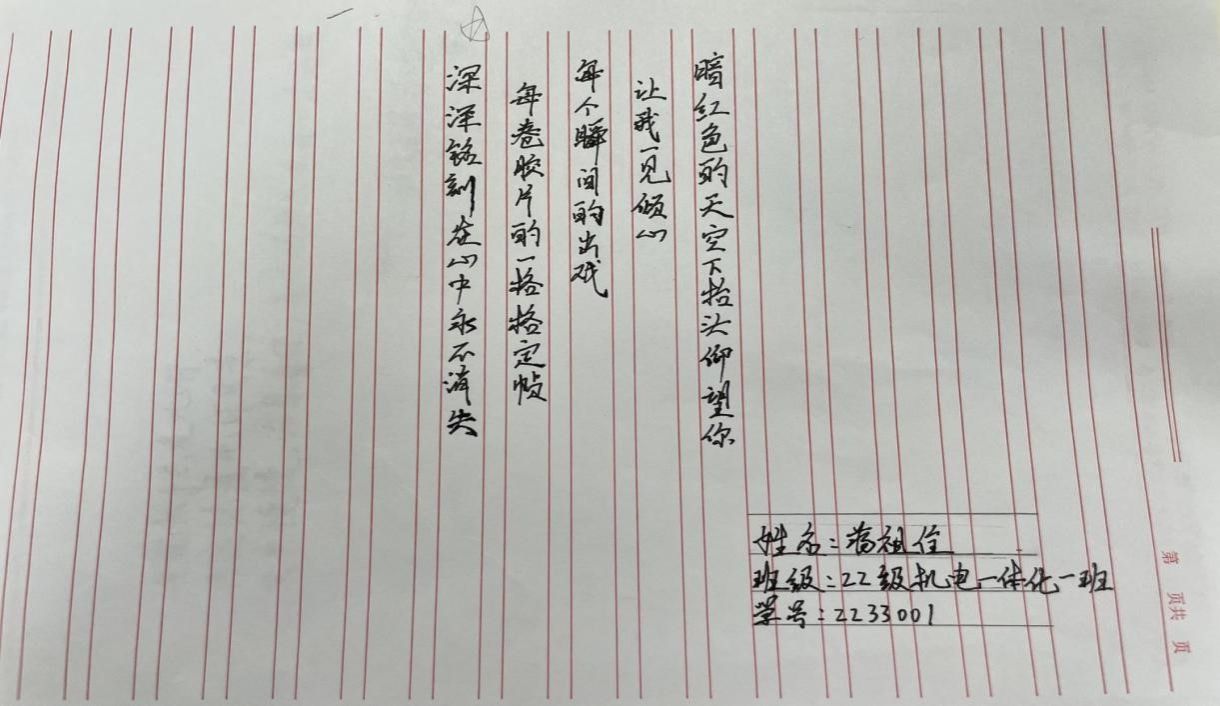 暗红色的天空下抬头仰望你
让我一见倾心
每个瞬间的出现
每卷胶片的一格格定帧
深深铭刻在心中永不消失
姓名：蒋祖住
班级：22级机电一体化一班
学号：2233001
第 页共 页